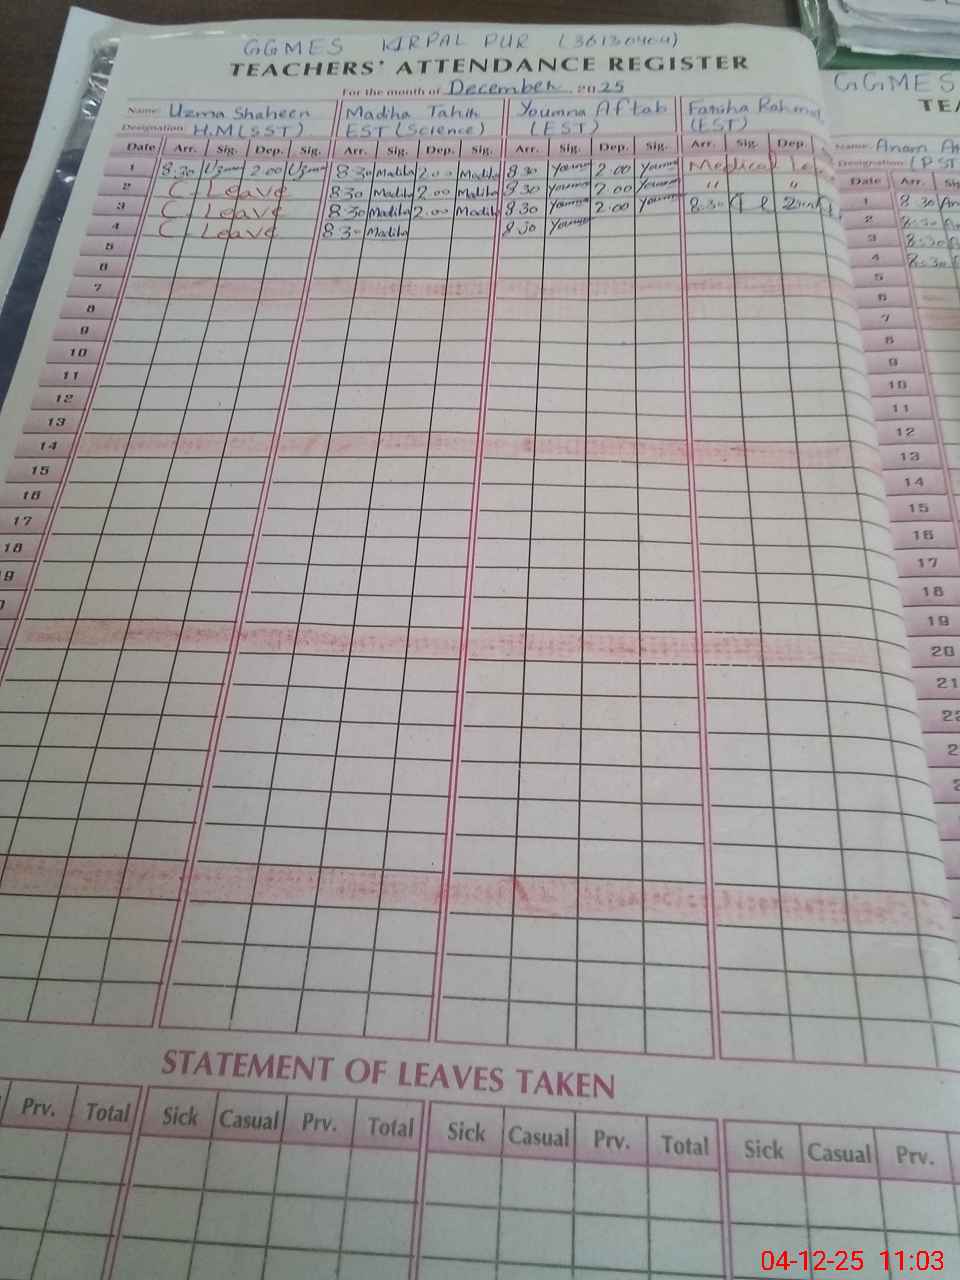 GGMES KIRPAL PUR (36130404)
TEACHERS' ATTENDANCE REGISTER
For the month of December 2025
Name: Uzma Shaheen Madiha Tahir Youmna Aftab Fariha Rahmat
Designation: H.M(SST) EST (Science) (EST) (EST)
Date Arr. Sig. Dep. Sig. Arr. Sig. Dep. Sig. Arr. Sig. Dep. Sig. Arr. Sig. Dep.
1 8:30 Uzma 2:00 Uzma 8:30 Madiha 2:00 Madiha 8:30 Youmna 2:00 Youmna Medical
2 C. Leave 8:30 Madiha 2:00 Madiha 8:30 Youmna 2:00 Youmna " "
3 C. Leave 8:30 Madiha 2:00 Madiha 8:30 Youmna 2:00 Youmna 8:30
4 C. Leave 8:30 Madiha 8:30 Youmna
5
6
7
8
9
10
11
12
13
14
15
16
17
18
9
STATEMENT OF LEAVES TAKEN
Prv. Total Sick Casual Prv. Total Sick Casual Prv. Total Sick Casual Prv.
GGMES
TEA
Name: Anam
Designation: (PST
Date Arr. Sig
1 8:30
2 8:30
3 8:30
4 8:30
5
6
7
8
9
10
11
12
13
14
15
16
17
18
19
20
21
22
04-12-25 11:03